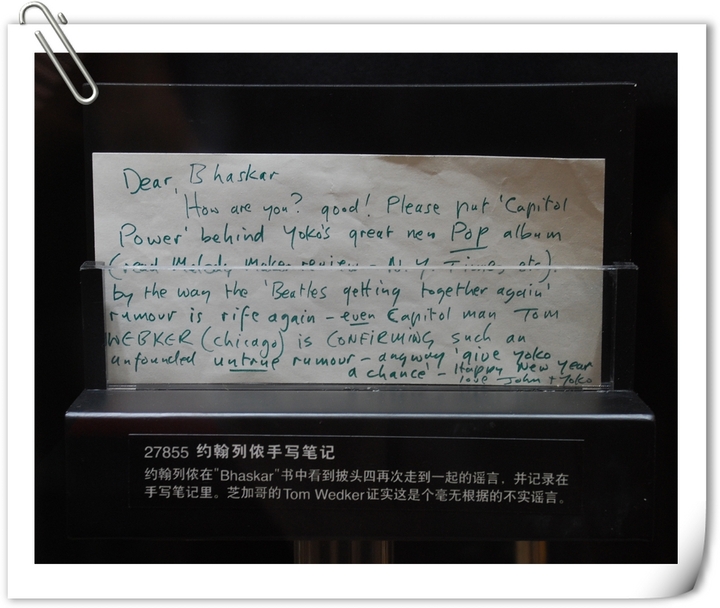 Dear, Bhaskar
How are you? good! Please put 'Capitol
Power' behind Yoko's great new Pop album
(read Melody Maker review - N.Y. Times etc).
by the way the 'Beatles getting together again'
rumour is rife again - even Capitol man Tom
WEBKER (chicago) is CONFIRMING such an
unfounded untrue rumour - anyway 'give Yoko
a chance' - Happy New Year
love John + Yoko
27855 约翰列侬手写笔记
约翰列侬在"Bhaskar"书中看到披头四再次走到一起的谣言，并记录在
手写笔记里。芝加哥的Tom Wedker证实这是个毫无根据的不实谣言。